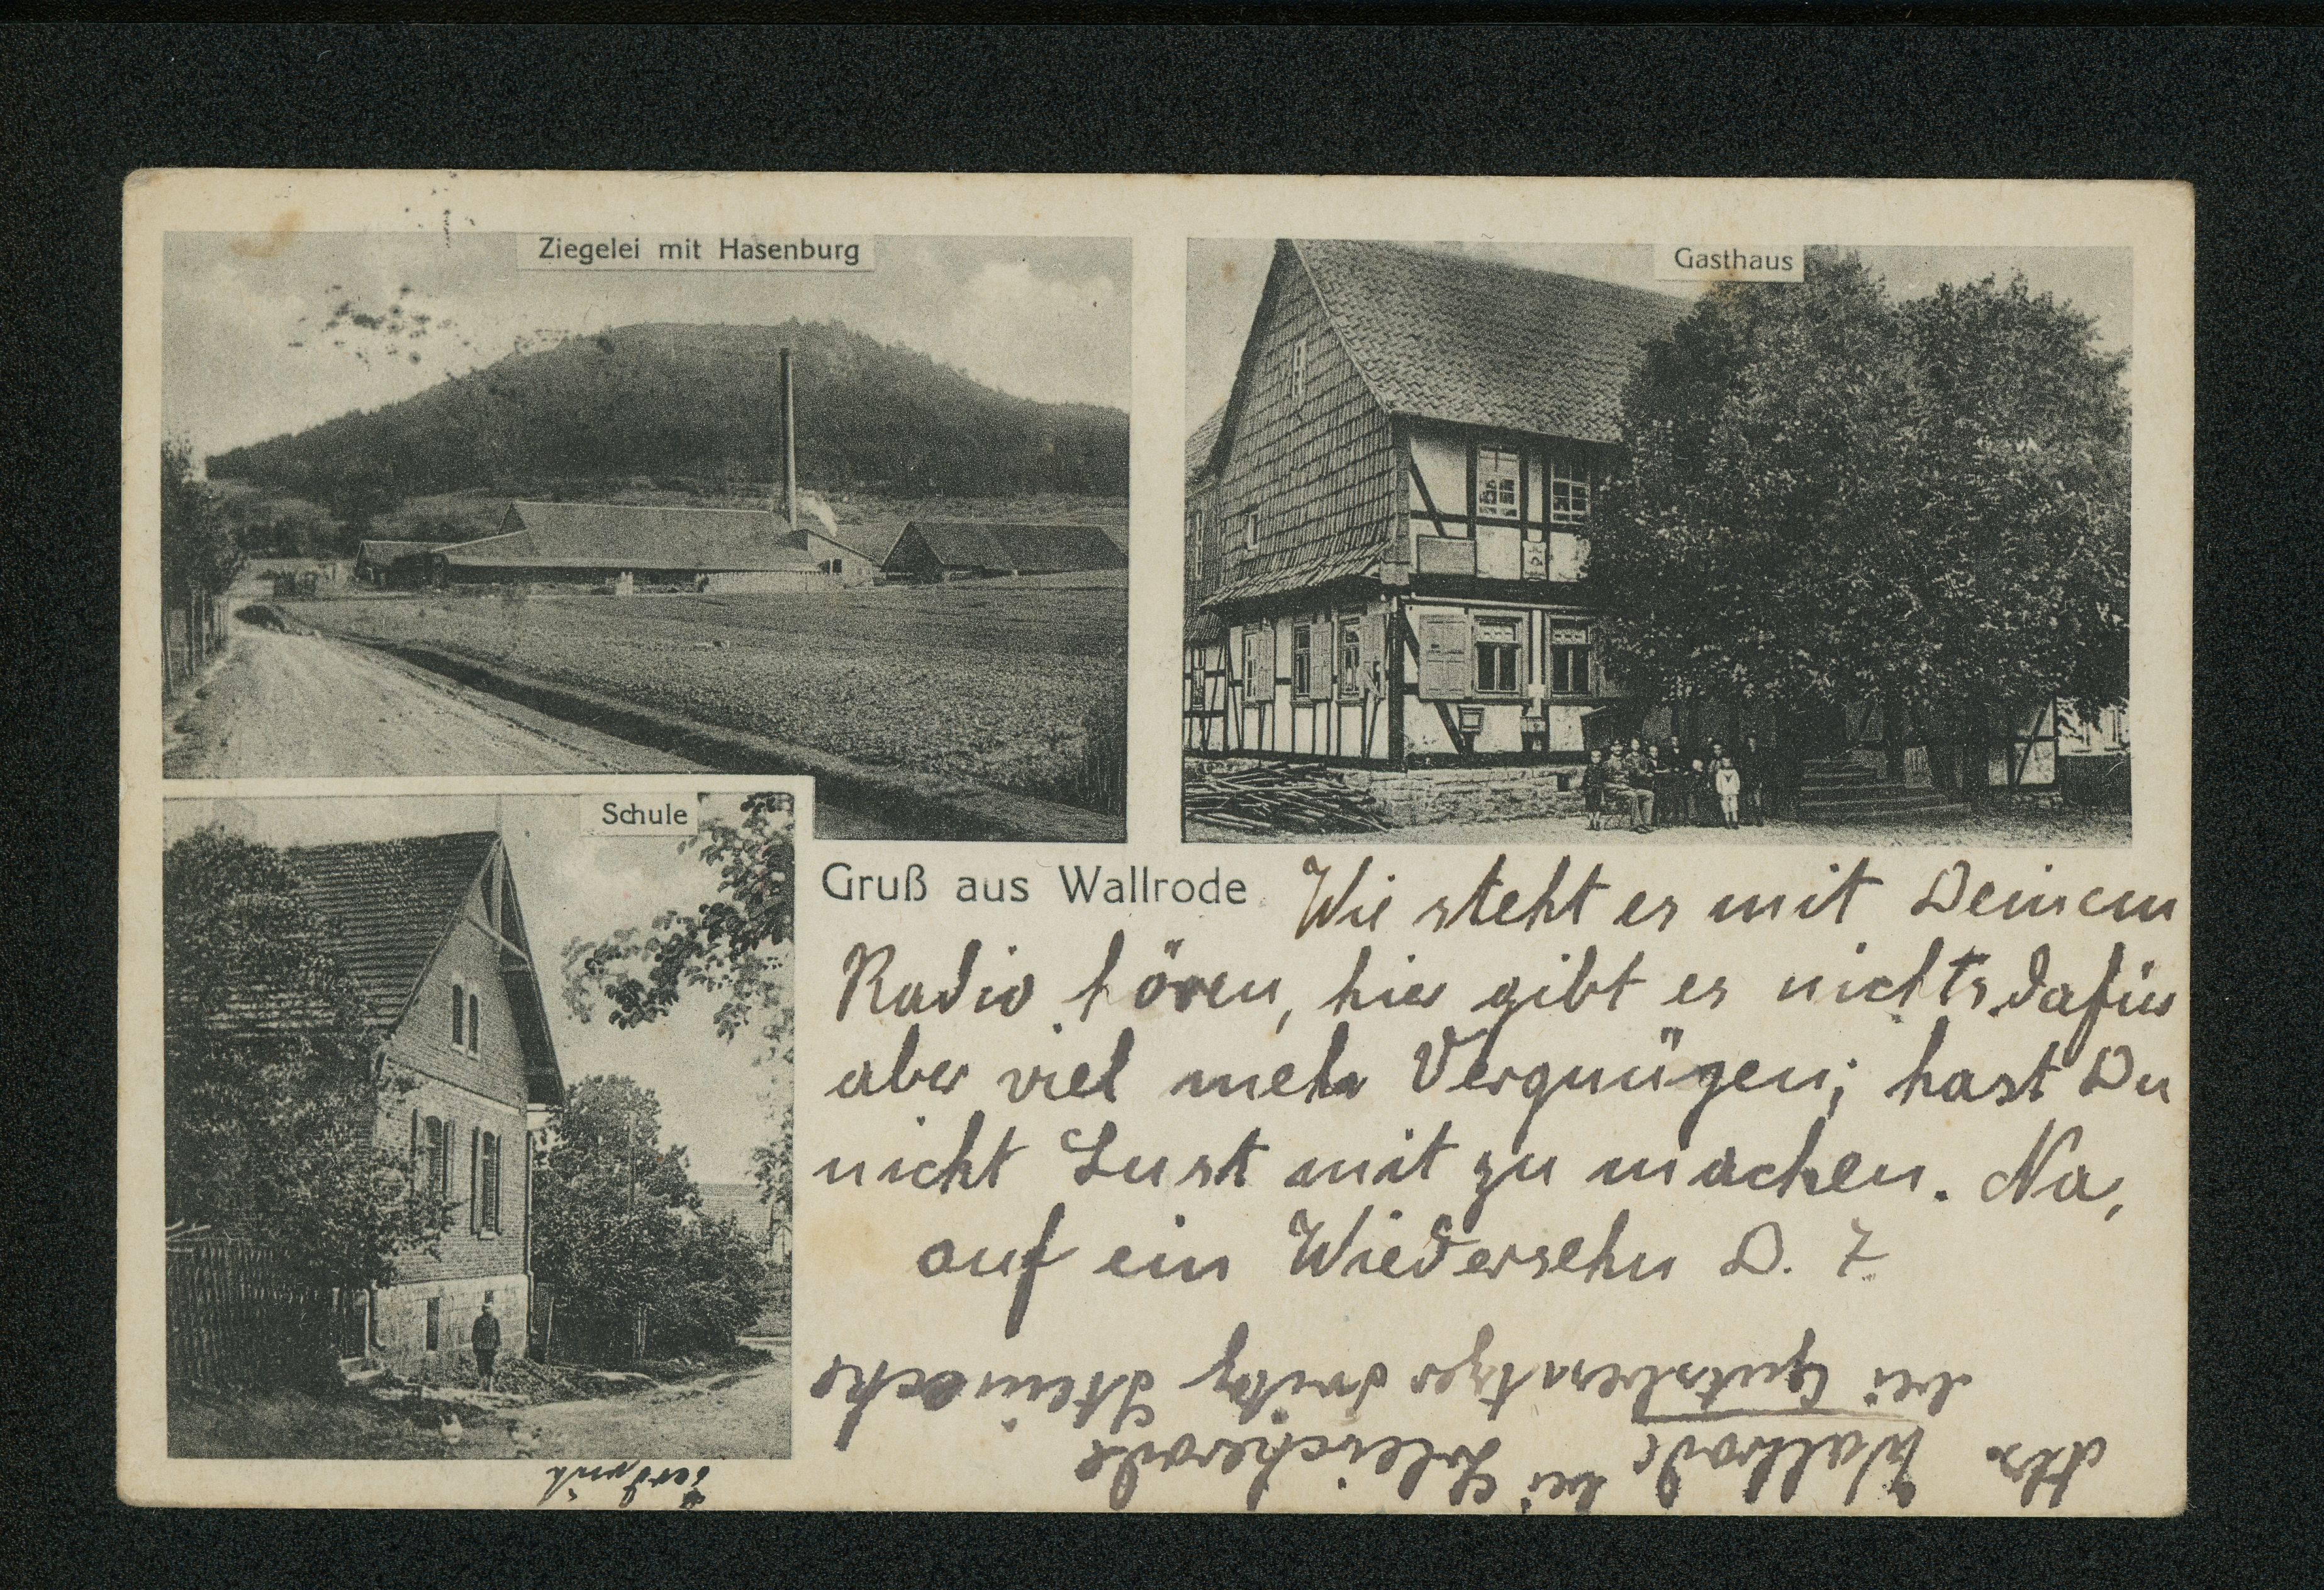 Ziegelei mit Hasenburg
Gasthaus
Schule
Gruß aus Wallrode
Wie steht es mit Deinem
Radio hören, hier gibt es nichts dafür
aber viel mehr Vergnügen; hast Du
nicht Lust mit zu machen. Na,
auf ein Wiedersehn D. F.
Wallrode bei Bleicherode
bei Gutsbesitzer Steinecke